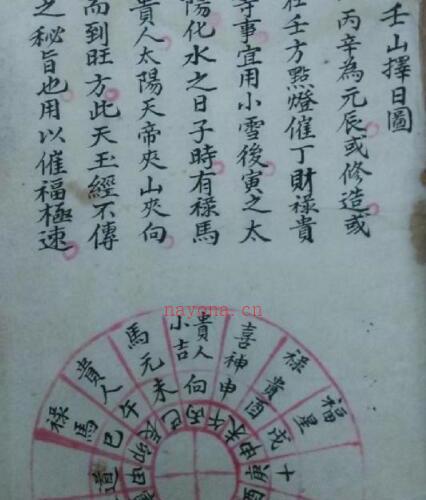 壬山擇日圖
丙辛為元辰或修造或
在壬方點燈催丁財祿貴
等事宜用小雪後寅之太
陽化水之日子時有祿馬
貴人太陽天帝夾山夾向
而到旺方此天玉經不傳
之秘旨也用以催福極速
福星
祿
喜神
貴人
小吉
馬
貴人
祿
十
戌
貴酉
申
向
元未
午
馬巳
道
酉
庚
申
未
午
丙
巳
辰
卯
nayona.cn